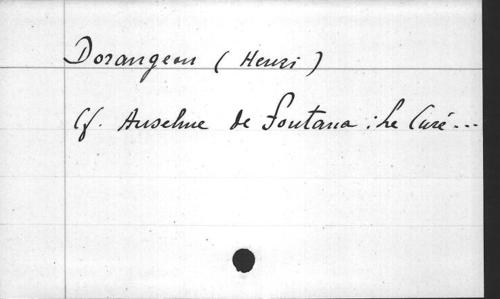 Dorangeon (Henri)
Cf. Anselme de Fontana : Le Curé...